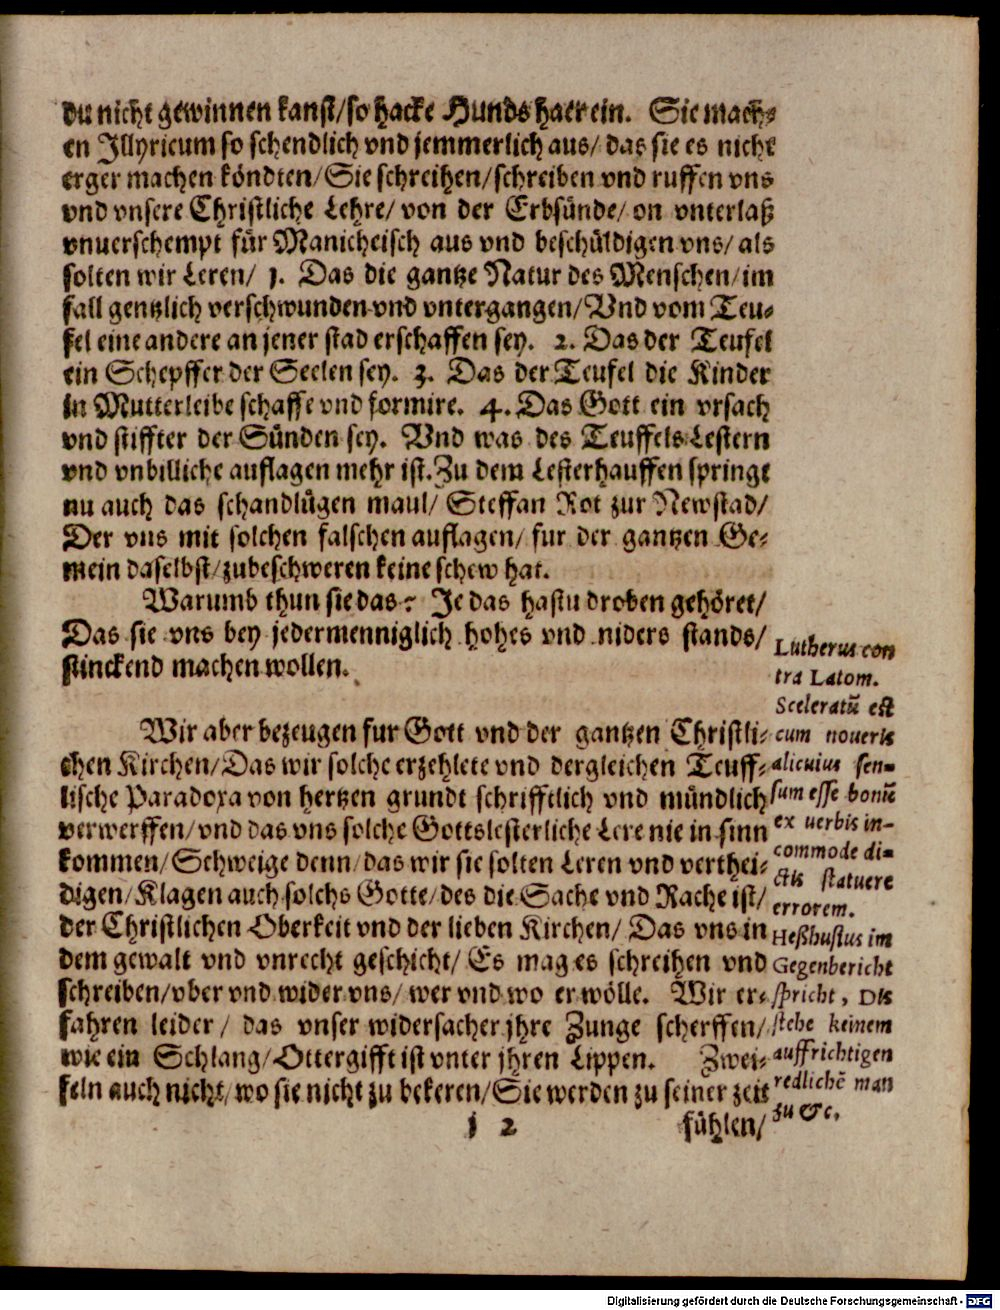 du nicht gewinnen kanst/so hacke Hunds haer ein. Sie mach⸗
en Illyricum so schendlich vnd jemmerlich aus/ das sie es nicht
erger machen köndten/Sie schreihen/schreiben vnd ruffen vns
vnd vnsere Christliche Lehre/ von der Erbsünde/ on vnterlaß
vnuerschempt für Manicheisch aus vnd beschüldigen vns/ als
solten wir Leren/ 1. Das die gantze Natur des Menschen/im
fall gentzlich verschwunden vnd vntergangen/Vnd vom Teu⸗
fel eine andere an jener stad erschaffen sey. 2. Das der Teufel
ein Schepffer der Seelen sey. 3. Das der Teufel die Kinder
in Mutterleibe schaffe vnd formire. 4. Das Gott ein vrsach
vnd stiffter der Sünden sey. Vnd was des Teuffels Lestern
vnd vnbilliche auflagen mehr ist. Zu dem Lesterhauffen springt
nu auch das schandlügen maul/ Steffan Rot zur Newstad/
Der vns mit solchen falschen auflagen/ fur der gantzen Ge⸗
mein daselbst/zubeschweren keine schew hat.
Warumb thun sie das? Je das hastu droben gehöret/
Das sie vns bey jedermenniglich hohes vnd niders stands/
stinckend machen wollen.
Wir aber bezeugen fur Gott vnd der gantzen Christli⸗
chen Kirchen/Das wir solche erzehlete vnd dergleichen Teuff⸗
lische Paradoxa von hertzen grundt schrifftlich vnd mündlich
verwerffen/vnd das vns solche Gottslesterliche Lere nie in sinn
kommen/Schweige denn/das wir sie solten Leren vnd verthei⸗
digen/Klagen auch solchs Gotte/des die Sache vnd Rache ist/
der Christlichen Oberkeit vnd der lieben Kirchen/ Das vns in
dem gewalt vnd vnrecht geschicht/ Es mag es schreihen vnd
schreiben/vber vnd wider vns/ wer vnd wo er wölle. Wir er⸗
fahren leider/ das vnser widersacher jhre Zunge scherffen/
wie ein Schlang/Ottergifft ist vnter jhren Lippen. Zwei⸗
feln auch nicht/wo sie nicht zu bekeren/Sie werden zu seiner zeit
Lutherus con
tra Latom.
Sceleratũ est
cum noueris
alicuius sen-
sum esse bonũ
ex uerbis in-
commode di-
ctis statuere
errorem.
Heßhusius im
Gegenbericht
spricht, Dis
stehe keinem
auffrichtigen
redlichẽ man
zu &c.
j 2 fühlen/
Digitalisierung gefördert durch die Deutsche Forschungsgemeinschaft - DFG